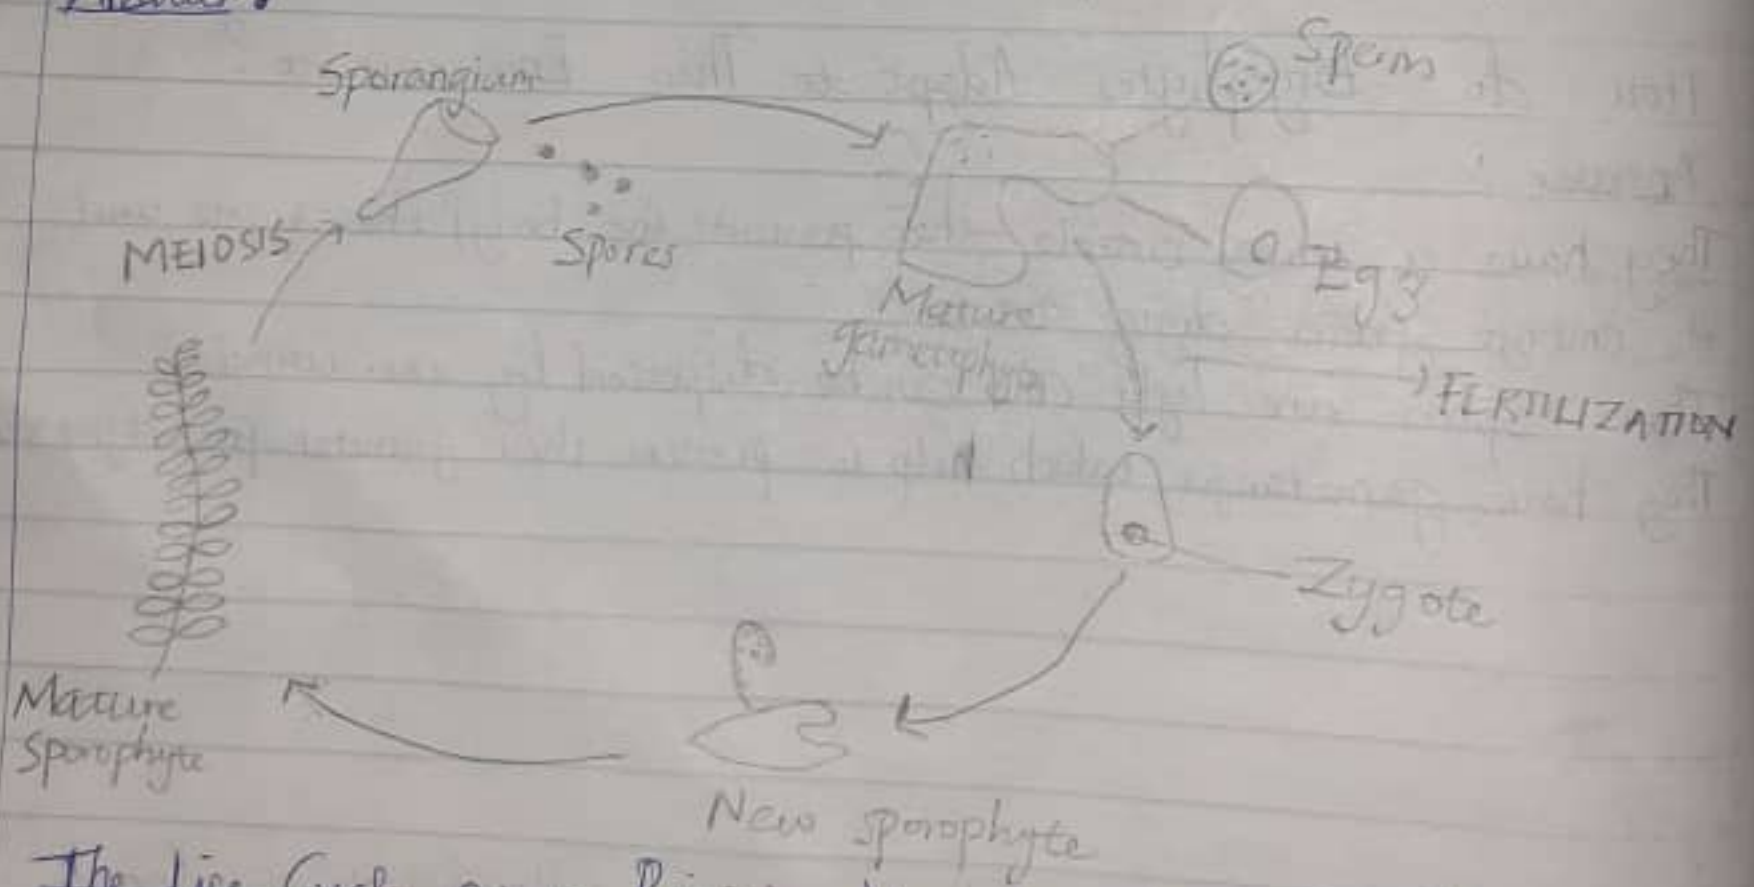 Answer:
Sporangium
Sperm
MEIOSIS
Spores
Egg
Mature
gametophyte
FERTILIZATION
Zygote
Mature
Sporophyte
New sporophyte
The Life Cycle